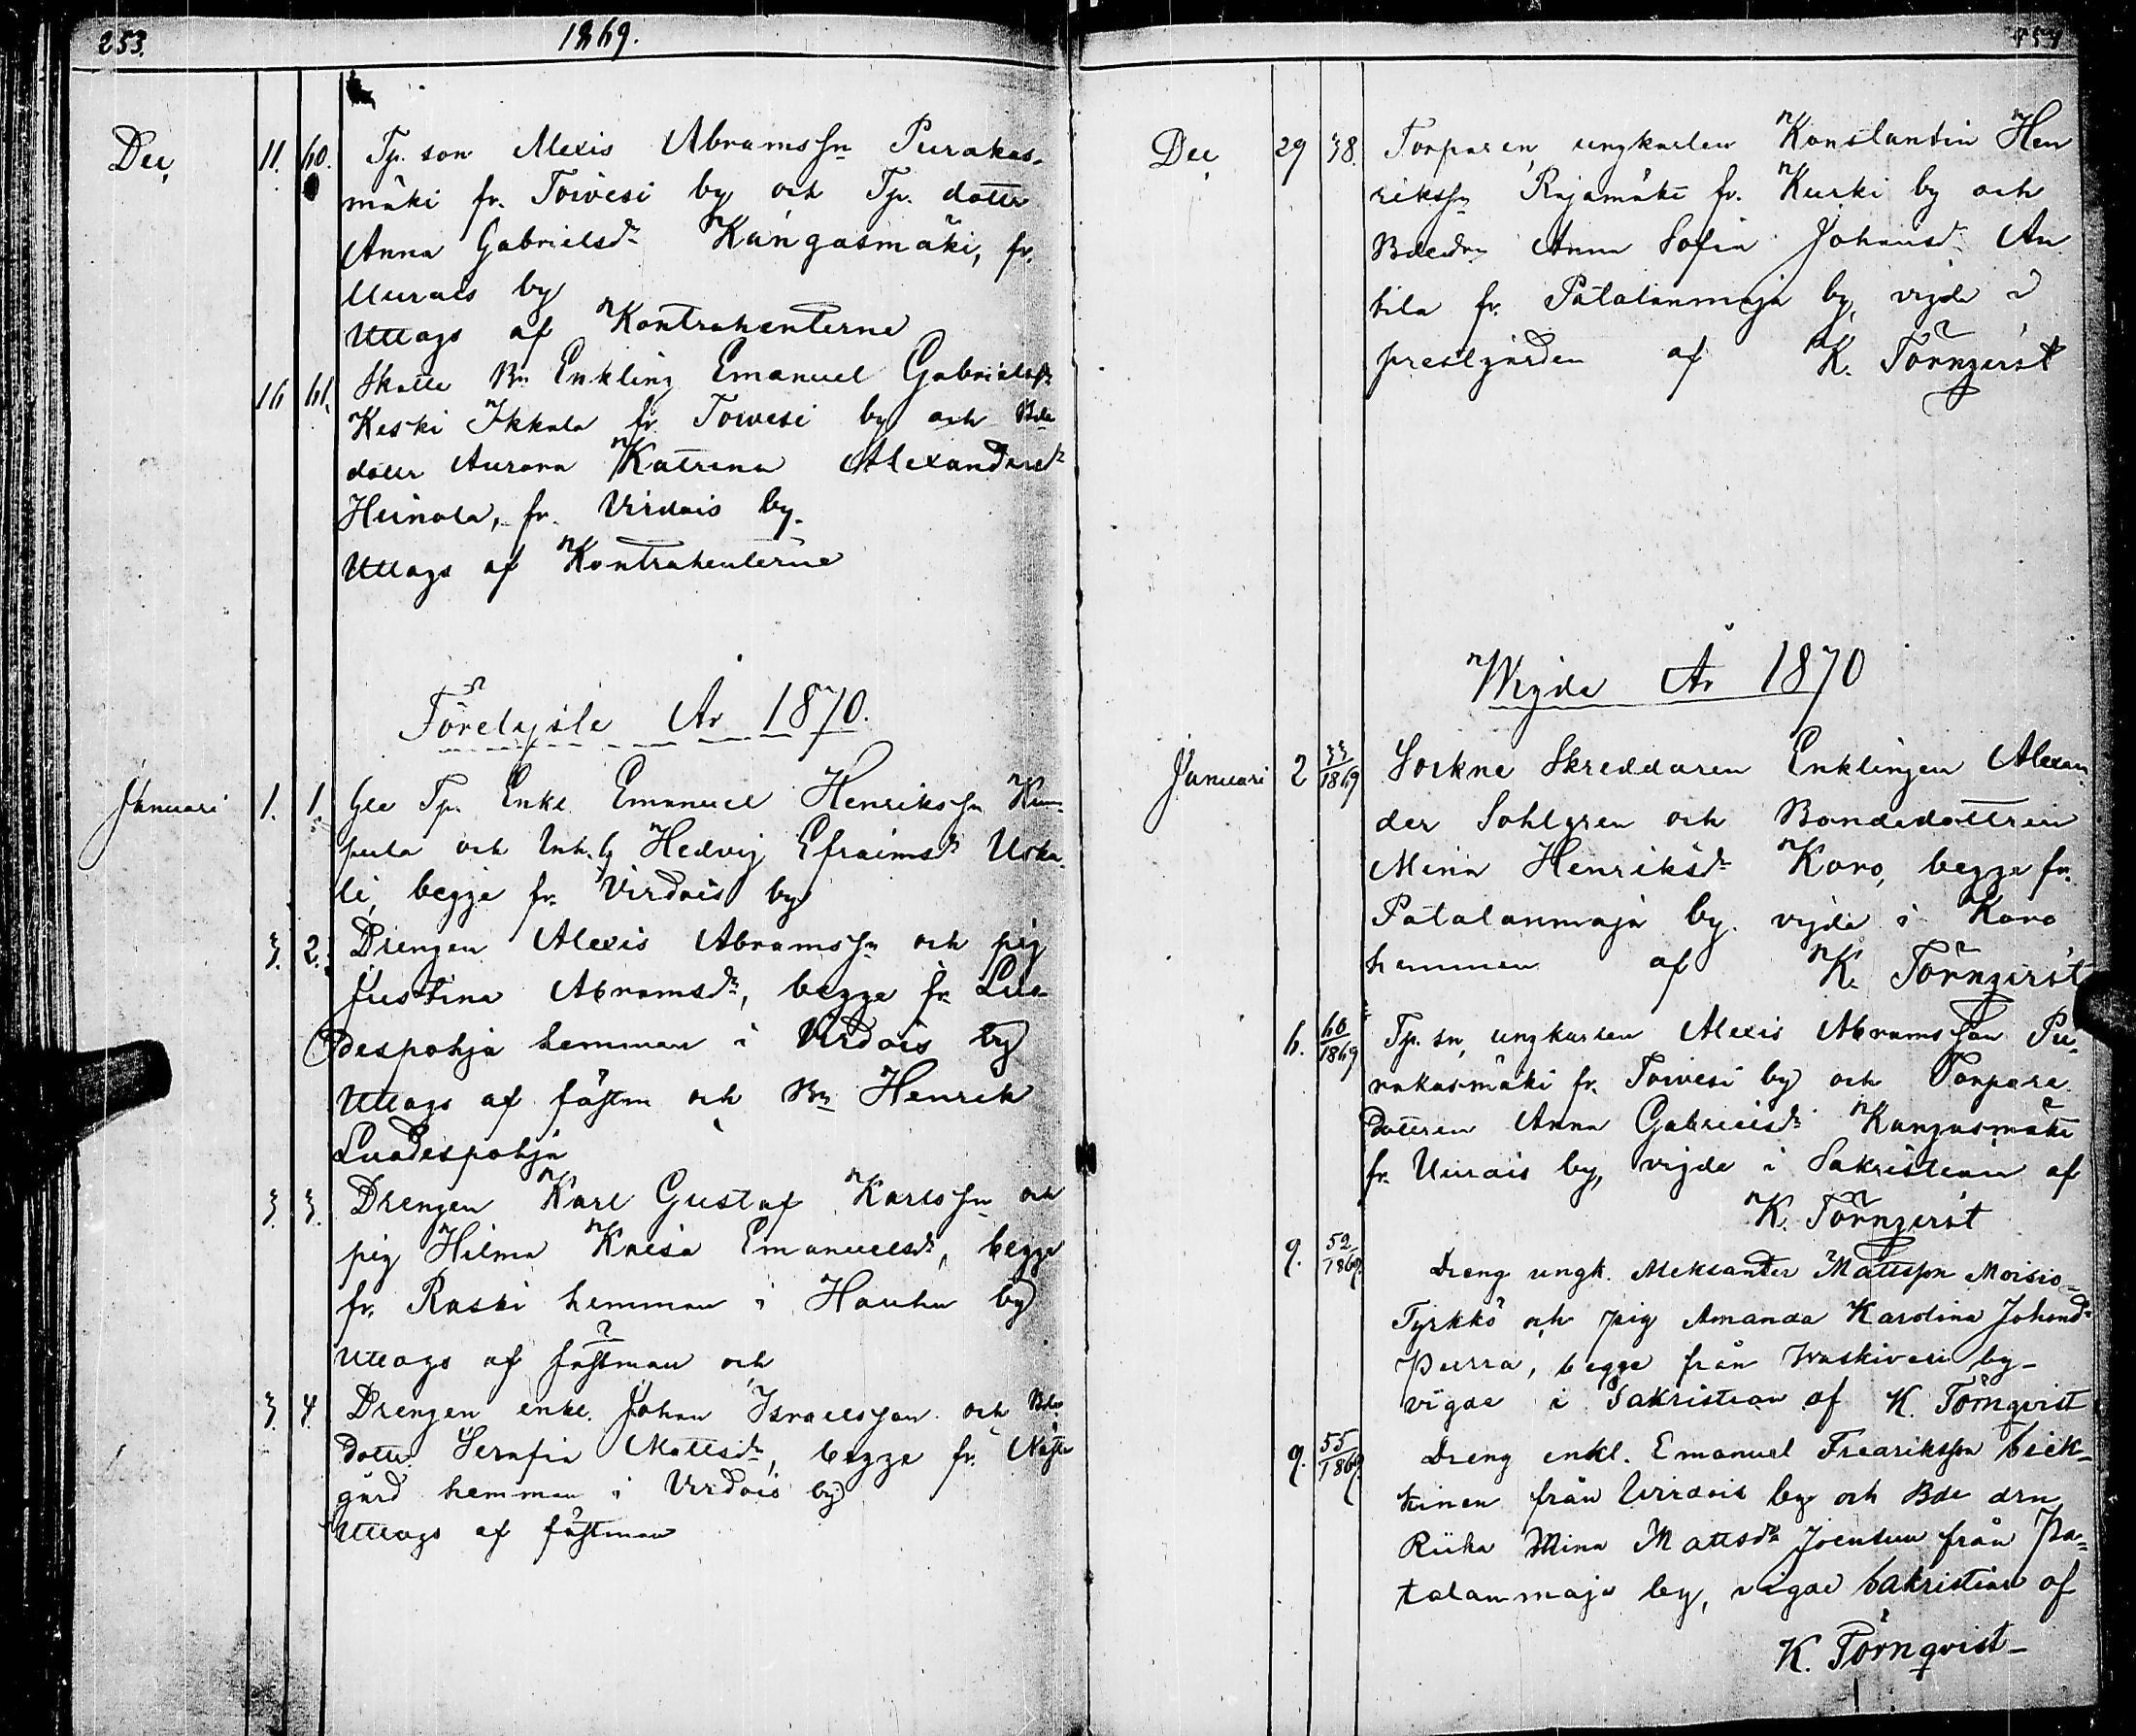 253.
1869.
Dec,
11. 60. Tp. son Alexis Abramssn Purakas-
mäki fr. Toivesi by och Tp. dotter
Anna Gabrielsdr Kangasmäki, fr.
Uurais by
Uttags af Kontrahenterne
16 61. Skatte Bn Enkling Emanuel Gabrielssn
Keski Ikkala fr Toivesi by och Bde
dotter Aurora Katrina Alexandersdr
Heinola, fr. Virdois by.
Uttags af Kontrahenterne
Förelyste År 1870.
Januari 1. 1. Gle Tp. Enkl Emanuel Henrikssn Kum-
pula och Inh. Hedvig Efraimsdr Uska-
li, begge fr. Virdois by
3. 2. Drengen Alexis Abramssn och pig
Justina Abramsdr, begge fr. Lua-
despohja hemman i Virdois by
Uttags af fästm och Bn Henrik
Luodespohja
3. 3. Drengen Karl Gustaf Karlssn och
pig Hilma Kaisa Emanuelsdr, begge
fr. Raski hemman i Hauhu by
Uttags af fästman och
3. 4. Drengen enkl. Johan Israelsson och Bde
dotter Serafia Mattsdr, begge fr.
gård hemman i Virdois by
Uttags af fästman
254
Dec, 29 38. Torparen, ungkarlen Konstantin Hen
rikssn Rajamäki fr. Kurki by och
Bdedrn Anna Sofia Johansdr An
tila fr. Patalanmaja by, vigde i
prestgården af K. Törnqvist
Wigde År 1870
Januari 2 33/1869 Sockne Skreddaren Enklingen Alexan
der Sohlgren och Bondedottren
Mina Henriksdr Koro, begge fr.
Patalanmaja by. vigde i Koro
hemman af K. Törnqvist
6. 60/1869 Tp. sn, ungkarlen Alexis Abramsson Pu-
rakasmäki fr. Toivesi by och Torpare
dottren Anna Gabrielsdr Kangasmäki
fr. Uurais by, vigde i Sakristian af
K. Törnqvist
9. 52/1869. Dreng ungk. Aleksander Mattsson Moisio-
Tyrkkö och pig Amanda Karolina Johansdr
Purra, begge från Waskivesi by-
vigde i Sakristian af K. Törnqvist
9. 55/1869. Dreng enkl. Emanuel Fredriksson Siek-
kinen från Virdois by och Bde drn
Riika Mina Mattsdr Joensuu från Pa-
talanmaja by, vigde Sakristian af
K. Törnqvist-